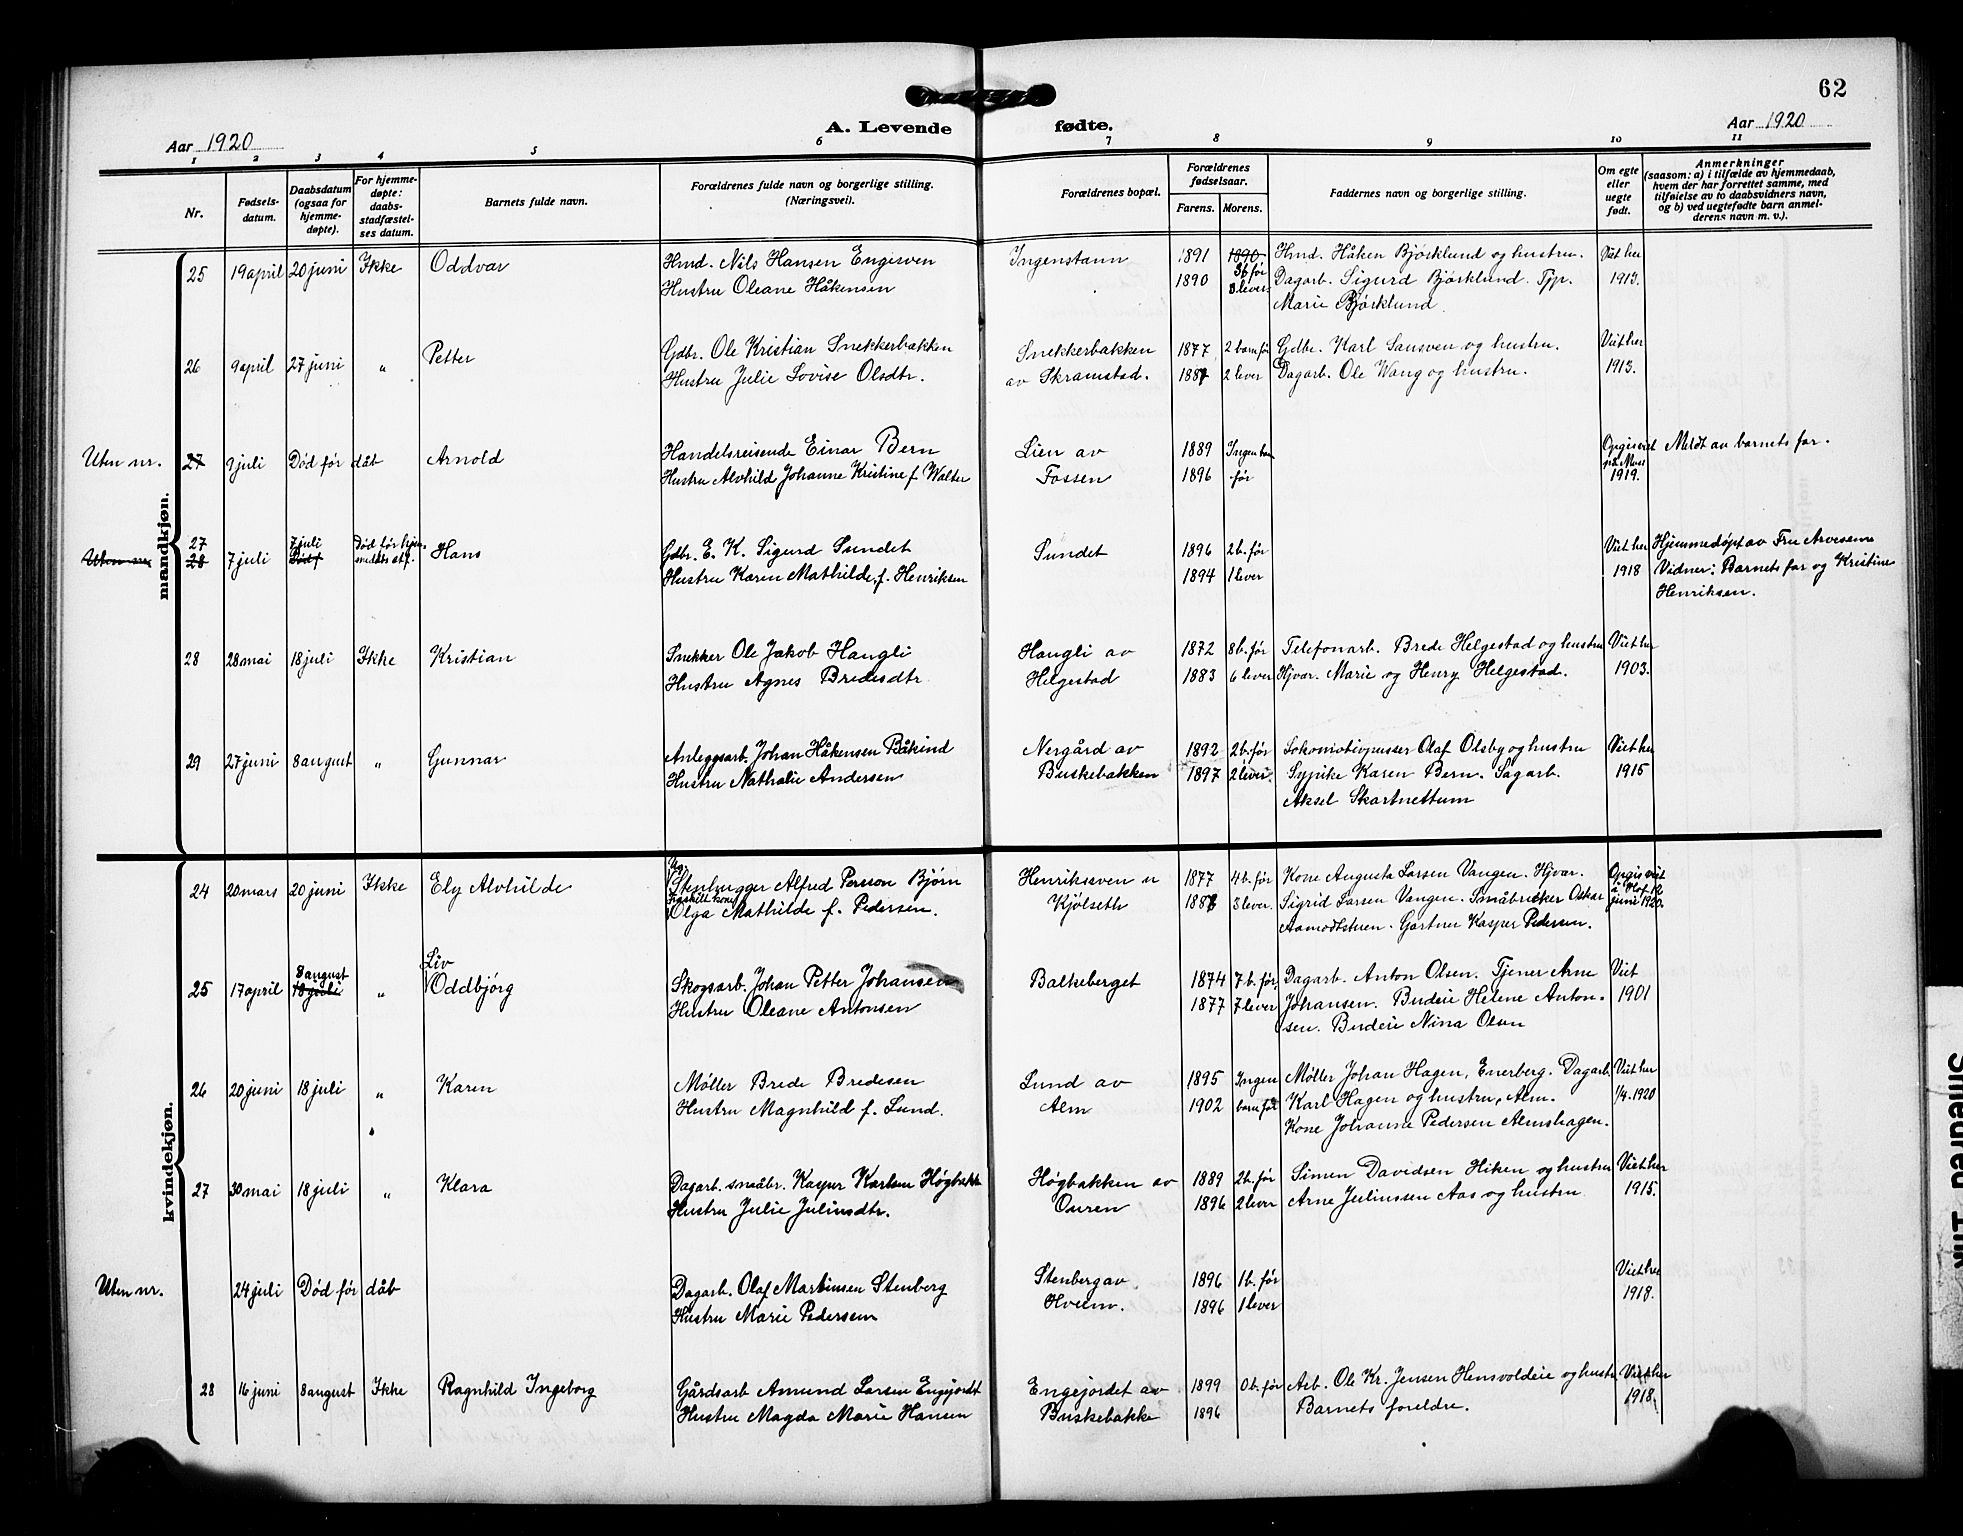 62
A. Levende fødte.
Aar 1920
Aar 1920
1 2 3 4 5 6 7 8 9 10 11
Nr.
Fødsels-
datum.
Daabsdatum
(ogsaa for
hjemme-
døpte).
For hjemme-
døpte:
daabs-
stadfæstel-
ses datum.
Barnets fulde navn.
Forældrenes fulde navn og borgerlige stilling.
(Næringsvei).
Forældrenes bopæl.
Forældrenes
fødselsaar.
Farens. Morens.
Faddernes navn og borgerlige stilling.
Om egte
eller
uegte
født.
Anmerkninger
(saasom: a) i tilfælde av hjemmedaab,
hvem der har forrettet samme, med
tilføielse av to daabsvidners navn,
og b) ved uegtefødte barn anmel-
derens navn m. v.).
mandkjøn.
25 19 april 20 juni Ikke Oddvar Hmd. Nils Hansen Engisven Ingenstann 1891 1890 Hmd. Håken Bjørklund og hustru. Viet her
Hustru Oleane Håkensen 1890 3b før 3 lever. Dagarb. Sigurd Bjørklund. Tjp. 1913.
Marie Bjørklund
26 9 april 27 juni " Petter Gdbr. Ole Kristian Snekkerbakken Snekkerbakken 1877 2 barn før Gdbr. Karl Sansven og hustru. Viet her
Hustru Julie Lovise Olsdtr. av Skramstad. 1887 2 lever Dagarb. Ole Wang og hustru. 1913.
Uten nr. 27 9 juli Død før dåb Arnold Handelsreisende Einar Bern Lien av 1889 Ingen barn Opgis viet Meldt av barnets far.
Hustru Alvhild Johanne Kristine f. Walter Fossen 1896 før på Moss 1919.
Uten nr. 27 28 7 juli 7 juli Død f Død før hjem- meddb. stf. Hans Gdbr. E. K. Sigurd Sundet Sundet 1896 2 b. før Viet her Hjemmedøpt av Fru Arvesen
Hustru Karen Mathilde, f. Henriksen 1894 1 lever 1918 Vidner: Barnets far og Kristine
Henriksen.
28 28 mai 18 juli Ikke Kristian Snekker Ole Jakob Haugli Haugli av 1872 8 b. før Telefonarb. Brede Helgestad og hustru Viet her
Hustru Agnes Bredesdtr. Helgestad 1883 6 lever Hjvar. Marie og Henry Helgestad. 1903.
29 27 juni 8 august " Gunnar Anleggsarb. Johan Håkensen Båkind Nergård av 1892 2 b. før Lokomotivpusser Olaf Olsby og hustru Viet her
Hustru Nathalie Andersen Buskebakken 1897 2 lever. Sypike Karen Bern. Sagarb. 1915
Aksel Skartnettum
kvindekjøn.
24 20 mars 20 juni Ikke Ely Alvhilde Ug. Stenhugger Alfred Persson Bjørn Henriksven u 1877 4 b. før Kone Augusta Larsen Vangen. Hjvar. Opgis viet
fraskilt kone Olga Mathilde f. Pedersen. Kjølseth 1886 3 lever. Sigrid Larsen Vangen. Småbruker Oskar i Hof 12 juni 1920.
Aamodtstuen. Gartner Kasper Pedersen.
25 17 april 8 august 18 juli " Liv Oddbjørg Skogsarb. Johan Petter Johansen Balkeberget 1874 7 b. før. Dagarb. Anton Olsen. Tjener Arne Viet
Hustru Oleane Antonsen 1877 7 lever Johansen. Budeie Helene Anton- 1901
sen. Budeie Nina Olsen
26 20 juni 18 juli " Karen Møller Brede Bredesen Lund av 1895 Ingen Møller Johan Hagen, Enerberg. Dagarb. Viet her
Hustru Magnhild f. Lund. Alm 1902 barn før Karl Hagen og hustru, Alm. 1/4.1920
Kone Johanne Pedersen Almshagen.
27 30 mai 18 juli " Klara Dagarb. småbr. Kasper Karlsen Høgbakk Høgbakken av 1889 2 b. før Simen Davidsen Hiken og hustru Viet her
Hustru Julie Juliusdtr. Ouren 1896 2 lever Arne Juliussen Aas og hustru 1915.
Uten nr. 24 juli Død før dåb Dagarb. Olaf Martinsen Stenberg Stenberg av 1896 1 b. før Viet her
Hustru Marie Pedersen Hveem. 1896 1 lever 1918.
28 16 juni 8 august Ikke Ragnhild Ingeborg Gårdsarb Amund Larsen Engejordt Engejordet av 1899 0 b. før Arb. Ole Kr. Jensen Hensvoldeie og hustr. Viet her
Hustru Magda Marie Hansen Buskebakke 1896 Barnets foreldre. 1918.